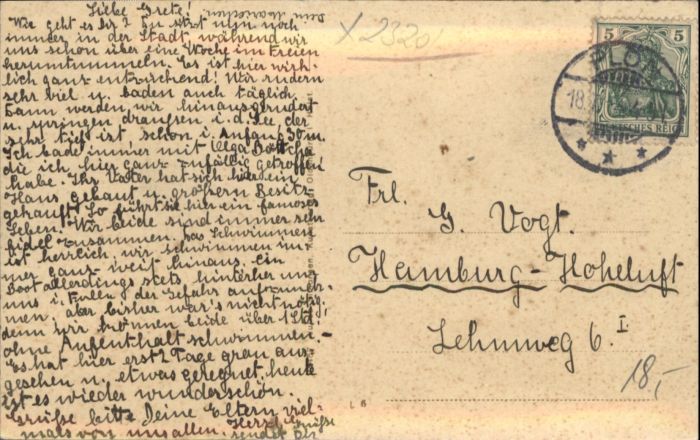 Liebe Grete!
Wie geht es Dir? Du sitzt nun noch
immer in der Stadt, während wir
uns schon über eine Woche im Freien
herumtummeln. Es ist hier wirk-
lich ganz entzückend! Wir rudern
sehr viel u. baden auch täglich.
Dann werden wir hinausgerudert
u. springen draußen i. d. See, der
sehr tief ist schon i. Anfang 30 m.
Ich bade immer mit Olga Böttcher
die ich hier ganz zufällig getroffen
habe. Ihr Vater hat sich hier ein
Haus gebaut u. größern Besitz
gekauft. So führt sie hier ein famoses
Leben. Wir beide sind immer sehr
fidel zusammen. Das Schwimmen
ist herrlich, wir schwimmen im-
mer ganz weit hinaus. Ein
Boot allerdings stets hinterher um
uns i. Fallen der Gefahr aufzuneh-
men, aber bisher war's nicht nötig,
denn wir können beide über 1 Std.
ohne Aufenthalt schwimmen.
Es hat hier erst 2 Tage grau aus-
gesehen u. etwas geregnet, heute
ist es wieder wunderschön.
Grüße bitte Deine Eltern viel-
mals von uns allen. Herzl. Grüße
sendet Dir
Dein Mariechen.
X 2320
5 5
DEUTSCHES REICH
PLÖN
18.
Frl.
G. Vogt.
Hamburg-Hoheluft
Lehmweg 6 I
18,-
L 6